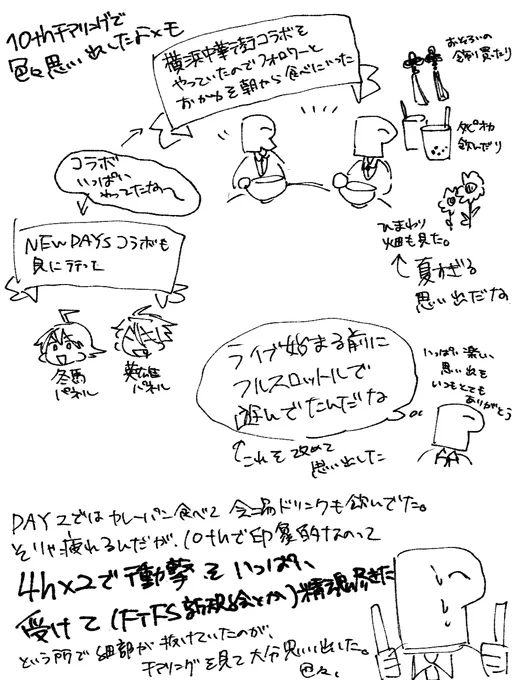 10thチマリングで
色々思い出したよメモ
横浜中華街コラボを
やっていたのでフォロワーと
おかゆを朝から食べにいった
おそろいの
飾り買ったり
タピオカ
飲んだり
コラボ
いっぱい
やってたな〜
ひまわり
畑も見た。
↑夏すぎる
思い出だな
NEWDAYSコラボも
見に行って
冬馬
パネル
英雄
パネル
ライブ始まる前に
フルスロットルで
遊んでたんだな
↑これを改めて
思い出した
いっぱい楽しい
思い出を
いつもとても
ありがとう
DAY2ではカレーパン食べて会場ドリンクも飲んでた。
そりゃ疲れるんだが、10thで印象的なのって
4h×2で衝撃をいっぱい
受けて(FTFS新規絵とか)精魂尽きた
という所で細部が抜けていたのが、
チマリングを見て大分思い出した。